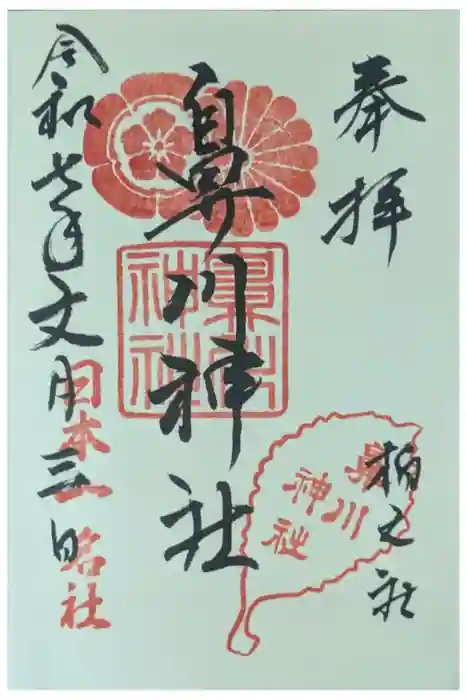 奉拝
柏之社
鼻川神社
鼻川神社
鼻川神社
令和七年文月三日
日本一社